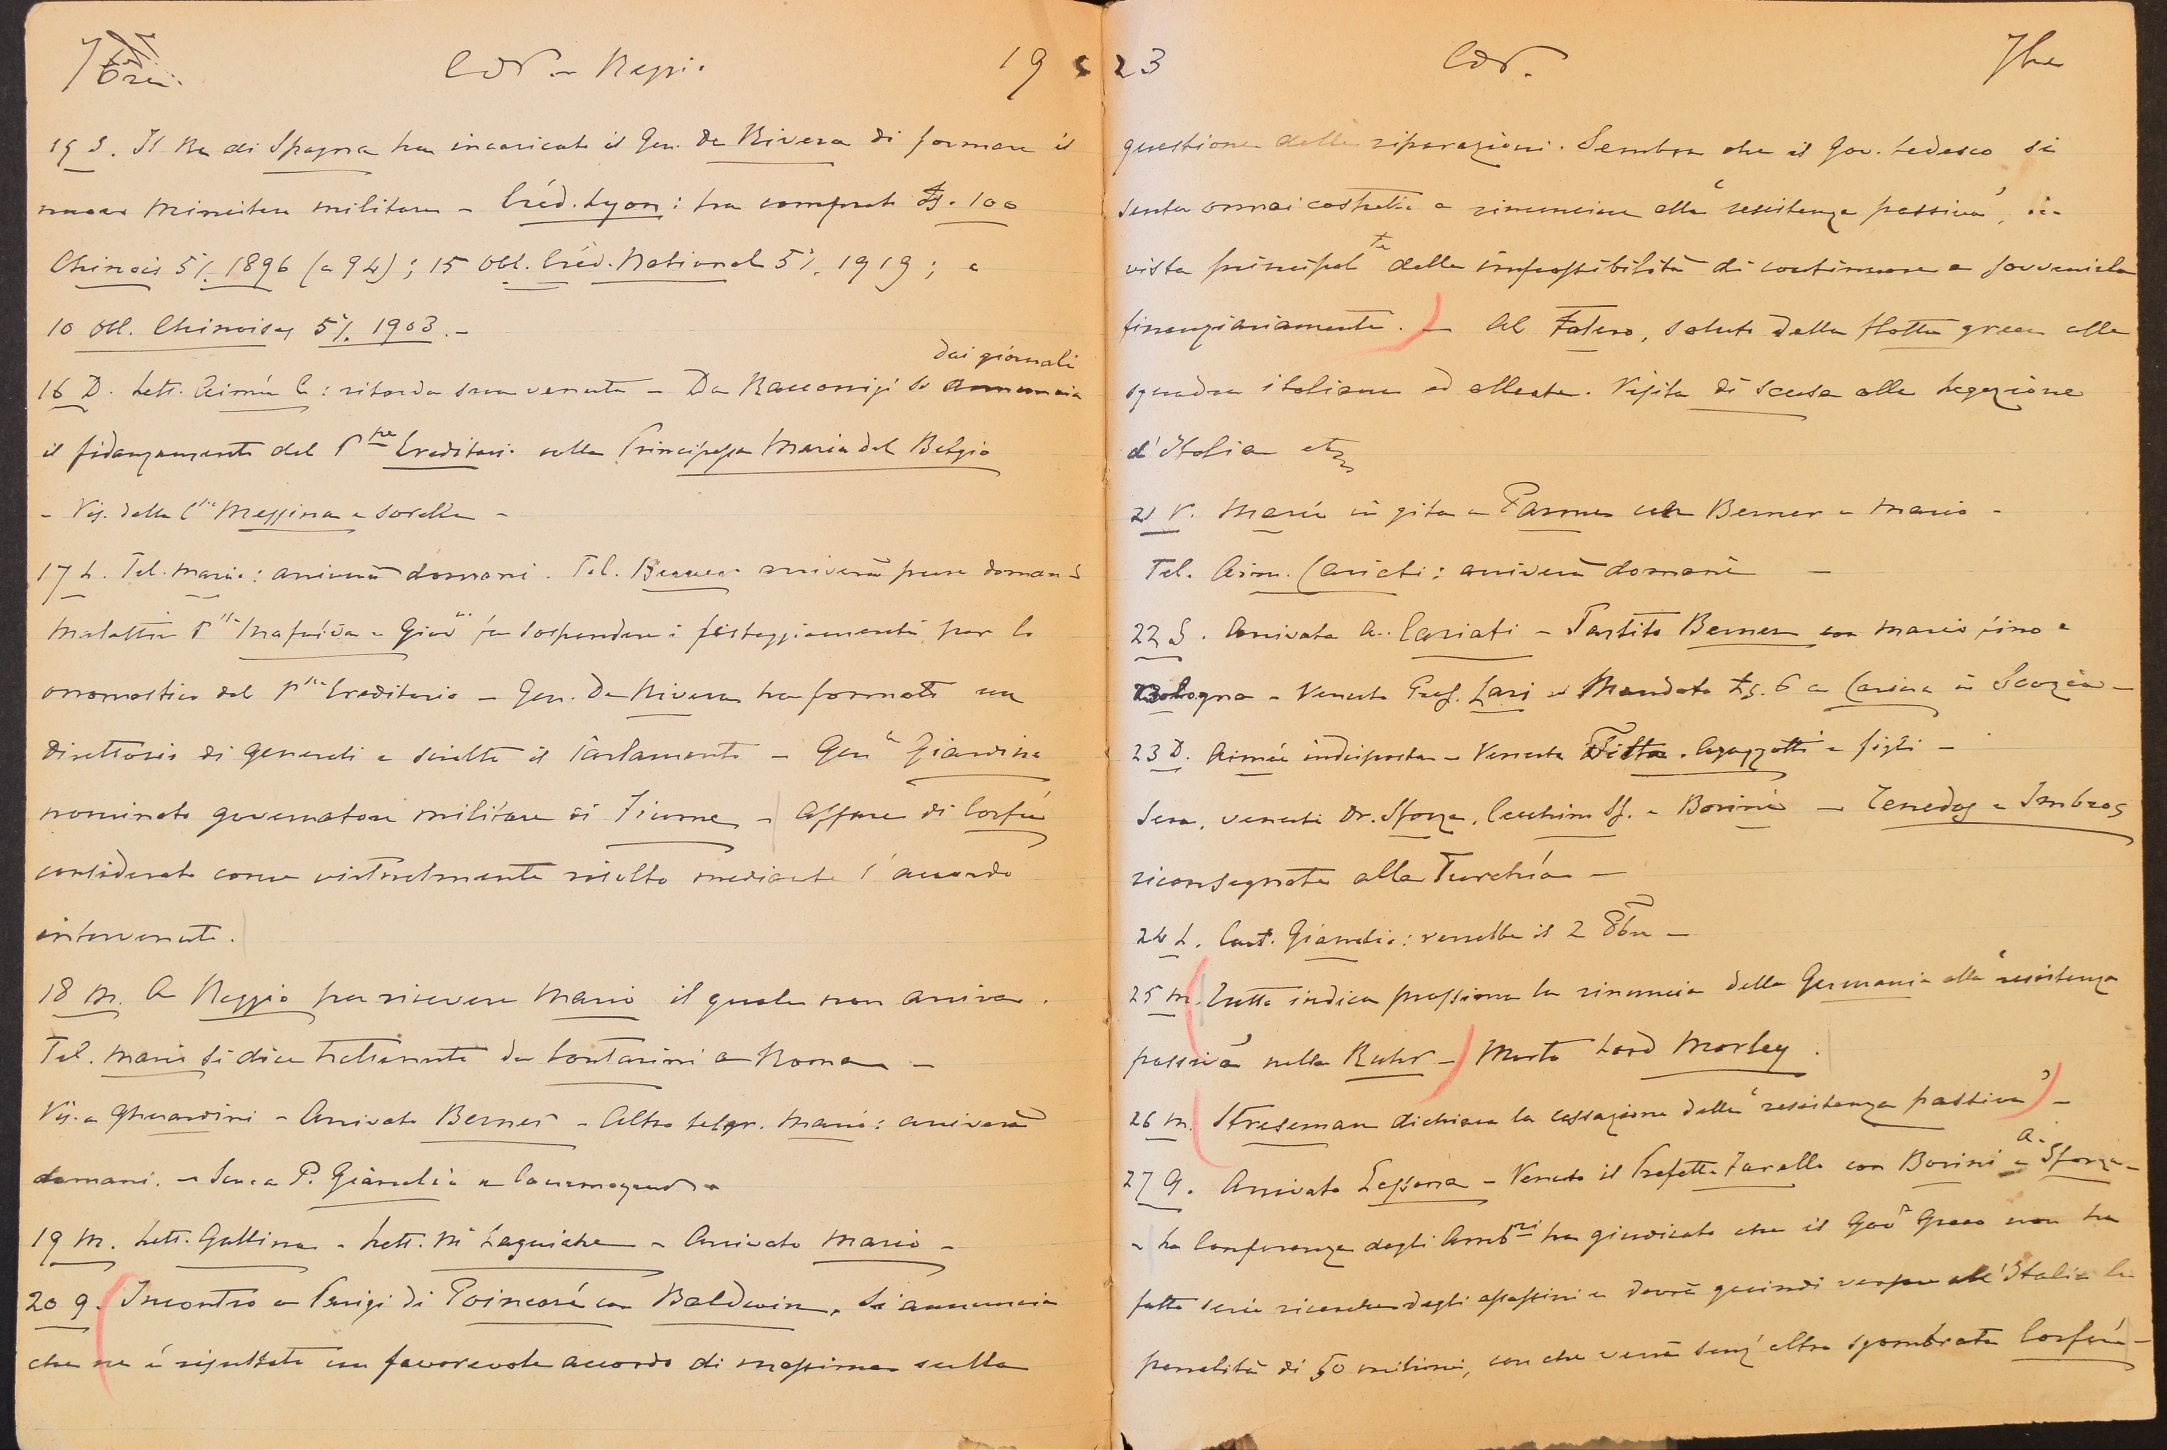 7bre. CdV. - Reggio 19
15 S. Il Re di Spagna ha incaricato il Gen. De Rivera di formare il
nuovo Ministero militare - Créd. Lyon: ha comprato 100
Chinois 5% 1896 (a 94); 15 Obl. Créd. National 5% 1919; e
10 Obl. Chinoises 5% 1903. -
dai giornali
16 D. Lett. Aimée C: ritarda sua venuta - Da Racconigi si annuncia
il fidanzamento del Pne Ereditario colla Principessa Maria del Belgio
- Vis. della Messina e sorella -
17 L. Tel. Mario: arriverà domani. Tel. Berner arriverà pure domani
Malattia Mafalda e Giovna fa sospendere i festeggiamenti per lo
onomastico del Ereditario - Gen. De Rivera ha formato un
Direttorio di generali e sciolto il Parlamento - Gen Giardino
nominato governatore militare di Fiume - Affare di Corfù
considerato come virtualmente risolto mediante l'accordo
intervenuto.
18 M. A Reggio per ricevere Mario il quale non arriva.
Tel. Mario si dice trattenuto da Contarini a Roma -
Vis. a Gherardini - Arrivato Berner - Altro telgr. Mario: arriverà
domani. - P. Giandia
19 M. Lett. Gallina - Lett. Mi Laguiche - Arrivato Mario -
20 G. Incontro a Parigi di Poincaré con Baldwin. Si annuncia
che ne è risultato un favorevole accordo di massima sulla
23 CdV. 7bre
questione delle riparazioni. Sembra che il Gov. tedesco si
senta ormai costretto a rinunciare alla "resistenza passiva", in
vista principalte della impossibilità di continuare a sovvenirla
finanziariamente. - Al Falero, saluto della flotta greca alla
squadra italiana ed alleate. Visita di scusa alla Legazione
d'Italia etc
21 V. Mario in gita a Parma con Berner e Mario -
Tel. Aim. Cariati: arriverà domani -
22 S. Arrivata A. Cariati - Partito Berner con Mario fino a
Bologna - Venuto Prof. Lari - Mandato 6 a Carina in Scozia -
23 D. Aimée indisposta - Venuta Agazzotti e figli -
Sera, venuti Dr. Sforza, Cecchini Sf. e Borini - Tenedos e Imbros
riconsegnate alla Turchia -
24 L. Cart. Giandia: verrebbe il 2 8bre -
25 M. Tutto indica prossima la rinuncia della Germania alla "resistenza
passiva" nella Ruhr - Morto Lord Morley.
26 M. Streseman dichiara la cessazione della "resistenza passiva" -
27 G. Arrivato Lessona - Venuto il Prefetto Farello con Borini e A. Sforza -
- La Conferenza degli Ambri ha giudicato che il Govo Greco non ha
fatto serie ricerche degli assassini e dovrà quindi versare all'Italia la
penalità di 50 milioni, con che verrà senz'altro sgombrata Corfù -